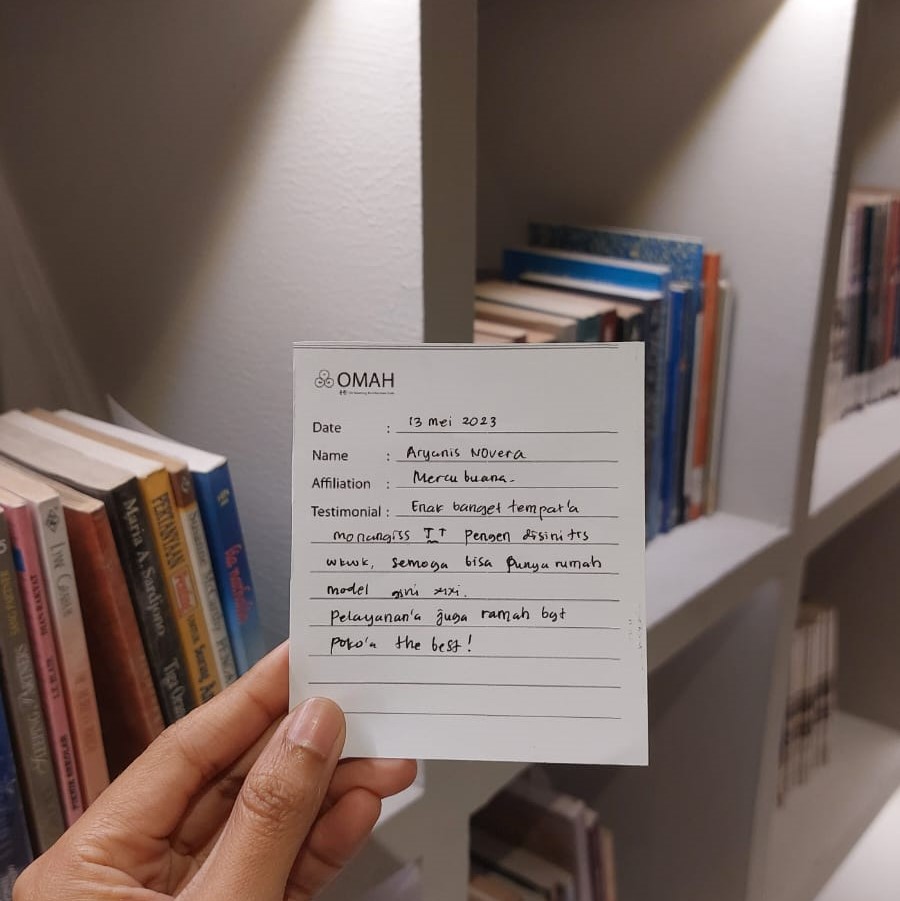 OMAH
Date : 13 mei 2023
Name : Aryanis Novera
Affiliation : Mercu buana.
Testimonial : Enak banget tempat'a
monangiss TT pengen disini trs
wkwk, semoga bisa punya rumah
model gini xixi.
Pelayanan'a juga ramah bgt
poko'a the best!
Maria A. Sardjono
PERTANYAAN